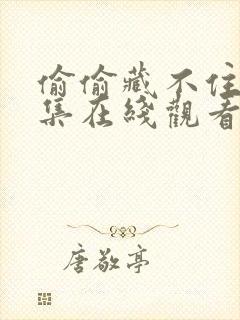 偷偷藏不住
集在綫觀看
唐敬亭